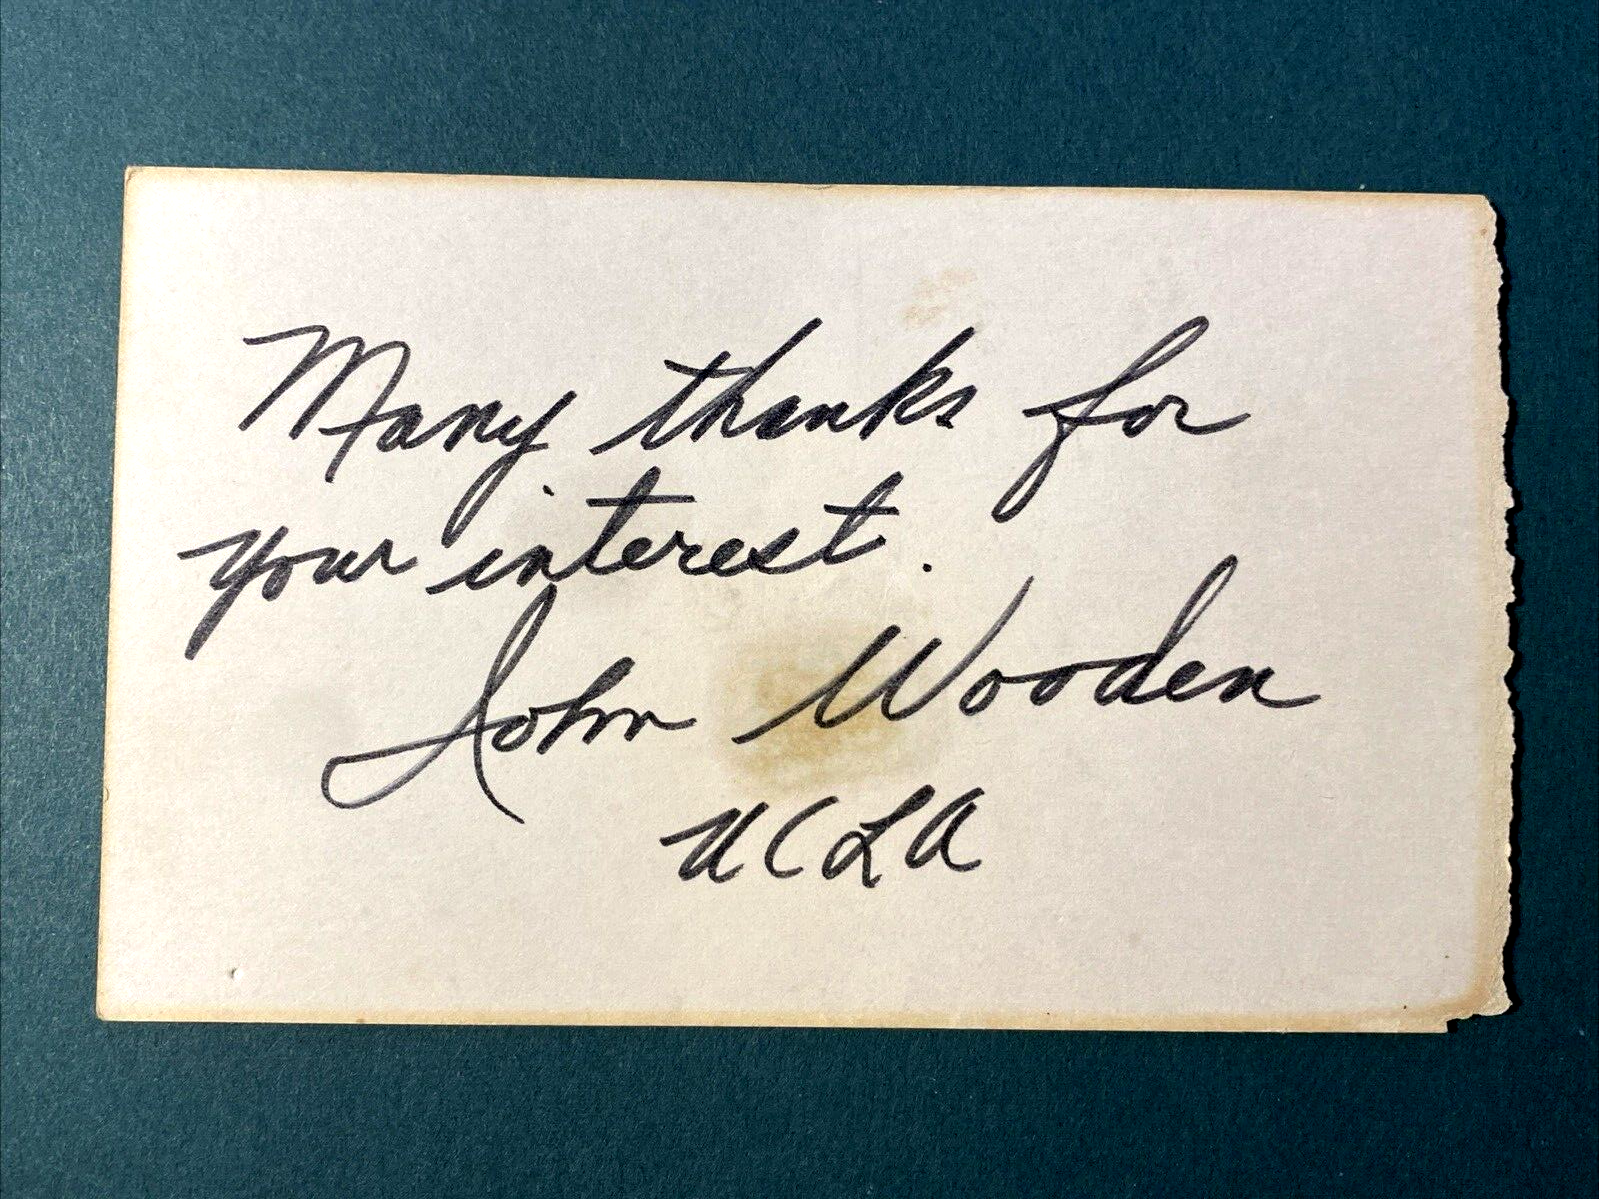 Many thanks for
your interest.
John Wooden
UCLA